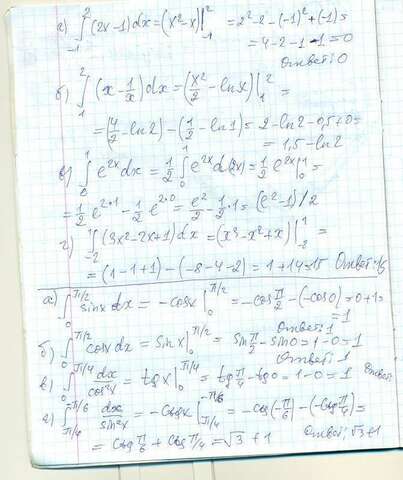 а) ∫₋₁² (2x-1)dx = (x²-x)|₋₁² = 2²-2-(-1)²+(-1)=
= 4-2-1-1=0
Ответ: 0
б) ∫₁² (x - 1/x)dx = (x²/2 - lnx)|₁² =
= (4/2 - ln2) - (1/2 - ln1) = 2-ln2-0,5+0=
= 1,5-ln2
в) ∫₀¹ e²ˣdx = 1/2 ∫₀¹ e²ˣd(2x) = 1/2 e²ˣ|₀¹ =
= 1/2 e^2·1 - 1/2 e^2·0 = e²/2 - 1/2·1 = (e²-1)/2
г) ∫₋₂¹ (3x²-2x+1)dx = (x³-x²+x)|₋₂¹ =
= (1-1+1)-(-8-4-2) = 1+14=15 Ответ: 15
а) ∫₀^π/2 sinx dx = -cosx|₀^π/2 = -cos π/2 -(-cos0)=0+1=
=1
Ответ: 1
б) ∫₀^π/2 cosx dx = sinx|₀^π/2 = sin π/2 - sin0=1-0=1
Ответ: 1
в) ∫₀^π/4 dx/cos²x = tgx|₀^π/4 = tg π/4 - tg0=1-0=1 Ответ:
г) ∫₋π/4^-π/6 dx/sin²x = -ctgx|₋π/4^-π/6 = -ctg(-π/6)-(-ctg π/4)=
= ctg π/6 + ctg π/4 = √3 +1 Ответ: √3+1